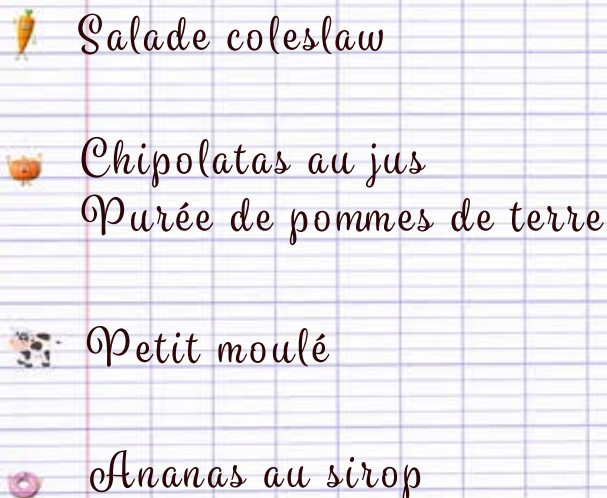 Salade coleslaw
Chipolatas au jus
Purée de pommes de terre
Petit moulé
Ananas au sirop